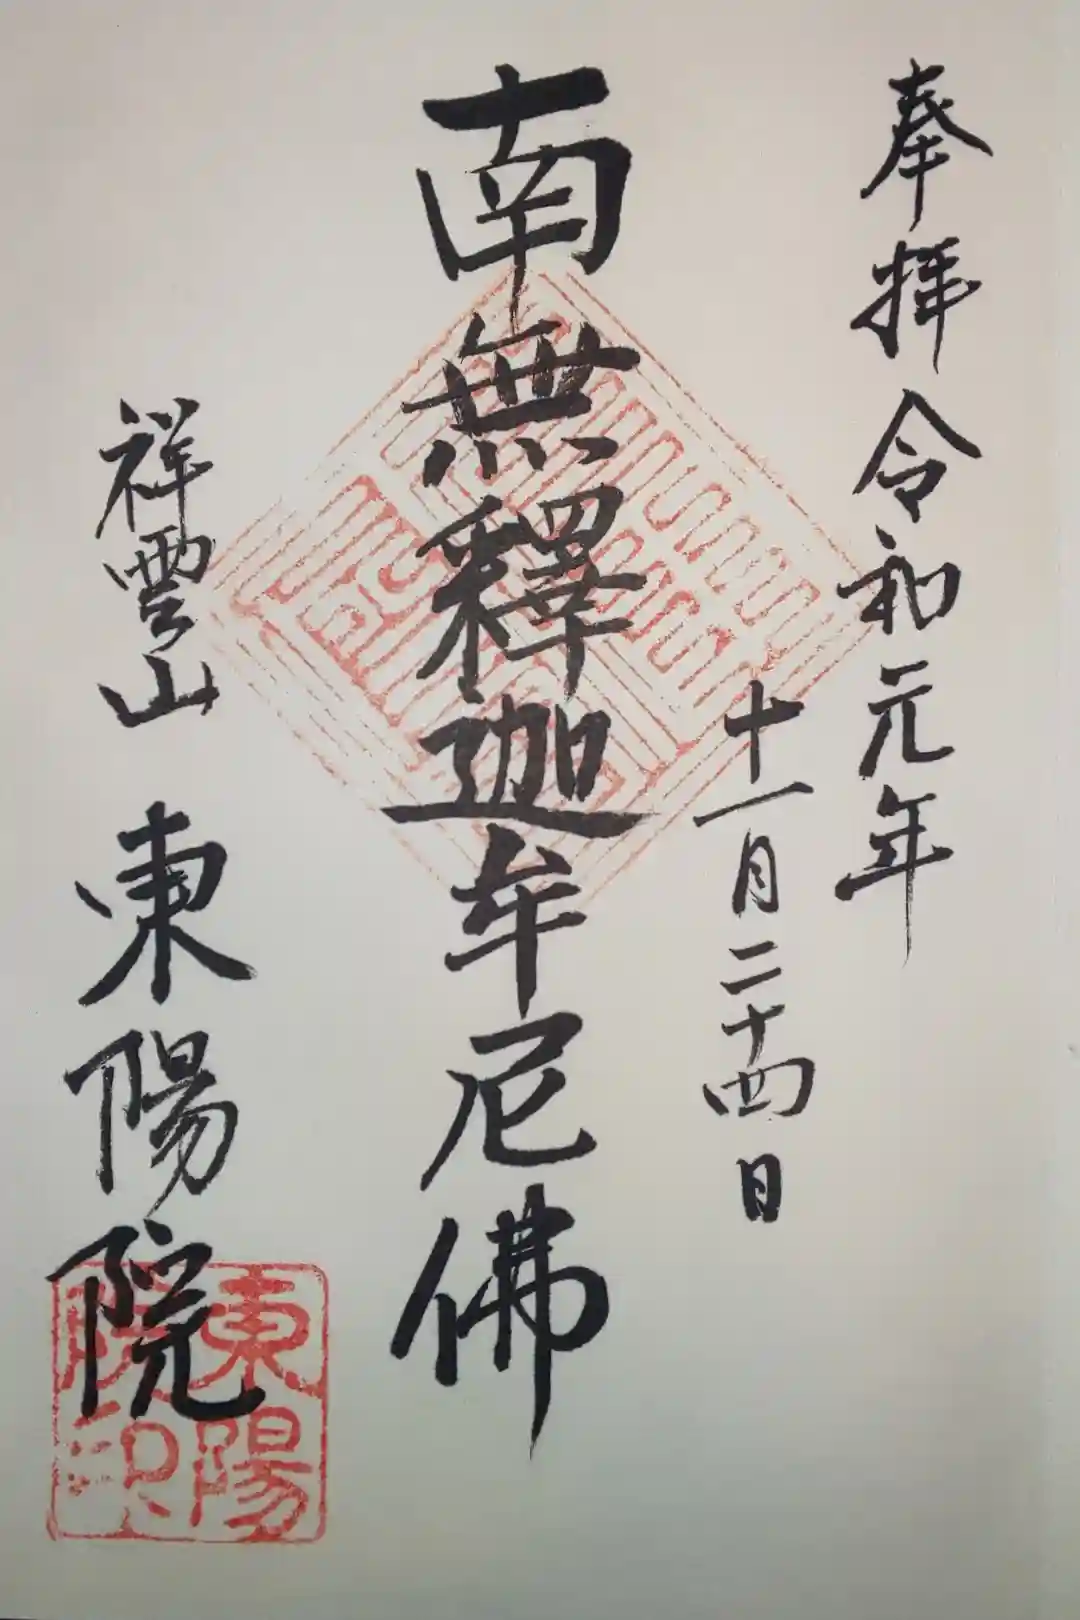 奉拝 令和元年
十一月二十四日
南無釋迦牟尼佛
祥雲山 東陽院
東陽
院印